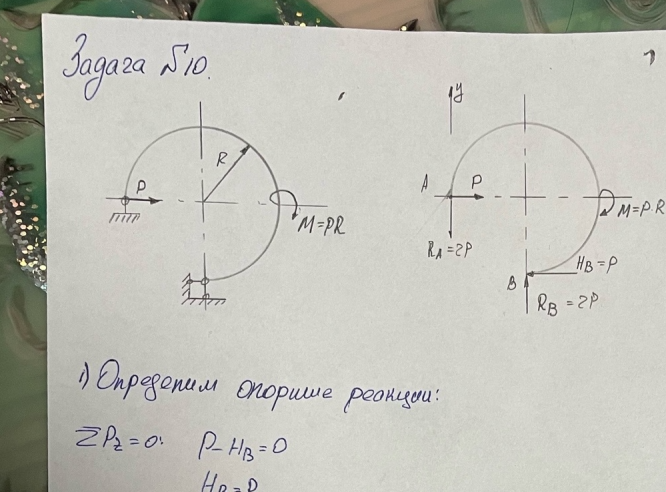 Задача №10.
P
R
M=PR
y
A
P
M=P.R
RA=2P
HB=P
B
RB=2P
1) Определим опорные реакции:
ΣPz=0: P-HB=0
HB=P